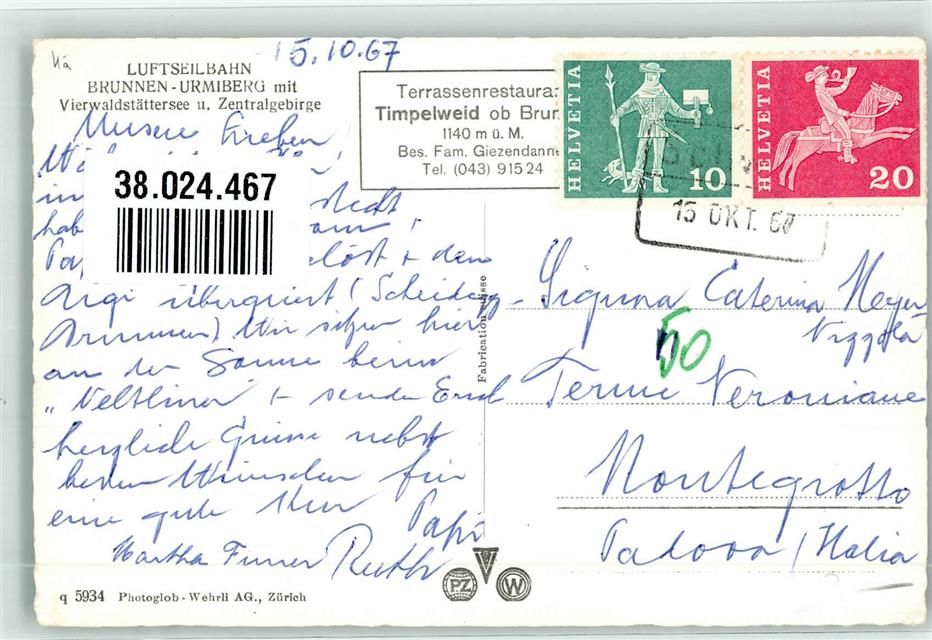 15.10.67
LUFTSEILBAHN
BRUNNEN-URMIBERG mit
Vierwaldstättersee u. Zentralgebirge
Terrassenrestaura
Timpelweid ob Brun
1140 m ü. M.
Bes. Fam. Giezendanne
Tel. (043) 9 15 24
HELVETIA 10
HELVETIA 20
15 OKT. 67
38.024.467
Unsere Lieben
in
hab
löst + den
Rigi überquert (Scheidegg-
Brunnen) Wir sitzen hier
an der Sonne beim
"Veltliner" + senden Euch
herzliche Grüsse nebst
besten Wünschen für
eine gute Kur
Papi
Martha Furrer Ruth
Fabrication Suisse
Signora Caterina Meyer
50
Terme Veroniane
Montegrotto
Padova / Italia
PZ W
q 5934 Photoglob-Wehrli AG., Zürich